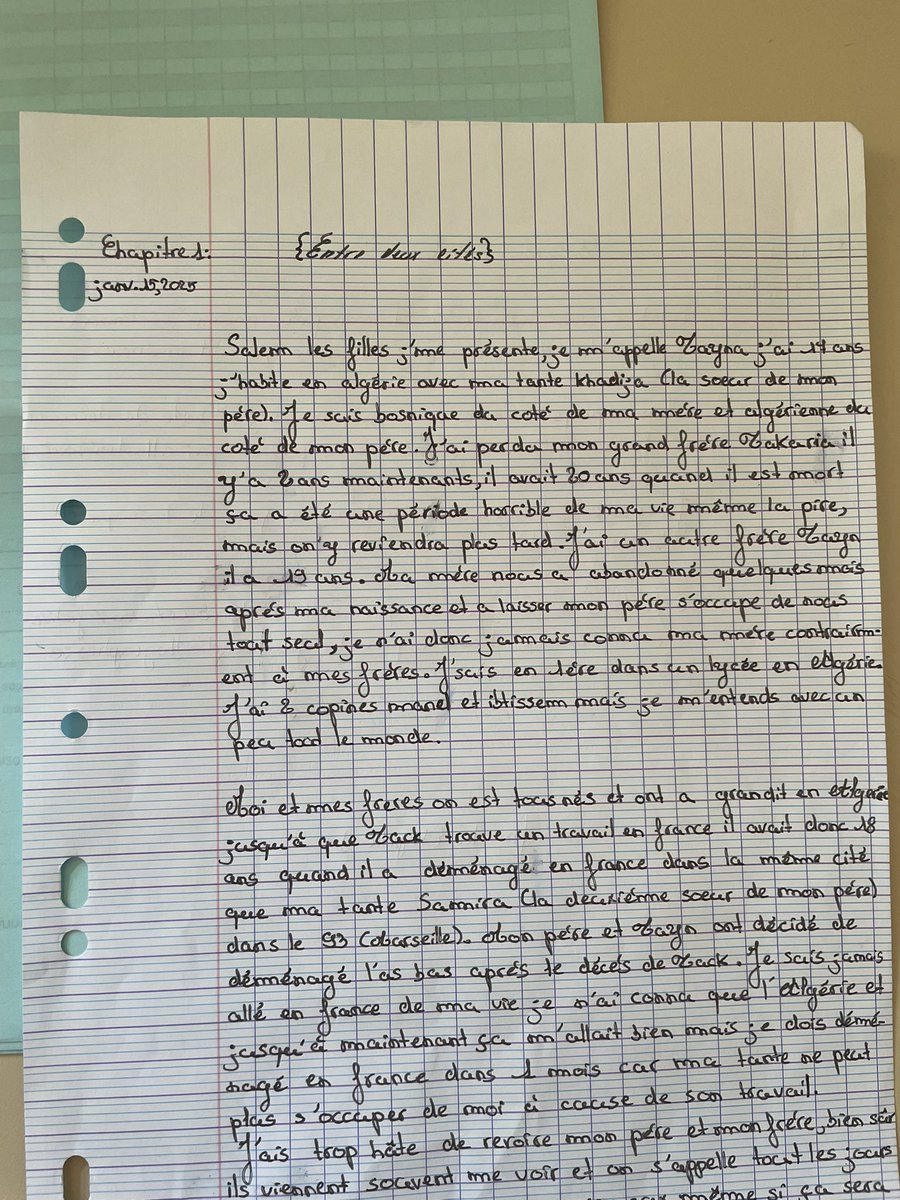 Chapitre 1: {Entre deux cités}
janv. 15, 2025
Salem les filles j'me présente, je m'appelle Zayna j'ai 17 ans
j'habite en algérie avec ma tante khadija (la soeur de mon
pére). Je suis bosnique du coté de ma mére et algérienne du
coté de mon pére. J'ai perdu mon grand frére Zakaria il
y'a 2 ans maintenants, il avait 20 ans quand il est mort
ça a été une période horrible de ma vie même la pire,
mais on'y reviendra plus tard. J'ai un autre frére Zayn
il a 19 ans. Ma mére nous a abandonné quelques mois
aprés ma naissance et a laisser mon pére s'occupe de nous
tout seul, je n'ai donc jamais connu ma mére contrairm-
ent à mes fréres. J'suis en 1ére dans un lycée en Algérie.
J'ai 2 copines manel et ibtissem mais je m'entends avec un
peu tout le monde.
Moi et mes freres on est tous nés et ont a grandit en Algérie
jusqu'à que Zack trouve un travail en france il avait donc 18
ans quand il a déménagé en france dans la même cité
que ma tante Samira (la deuxiéme soeur de mon pére)
dans le 93 (Marseille). Mon pére et Zayn ont décidé de
déménagé l'as bas aprés le décés de Zack. Je suis jamais
allé en france de ma vie je n'ai connu que l'Algérie et
jusqu'à maintenant ça m'allait bien mais je dois démé-
nagé en france dans 1 mois car ma tante ne peut
plus s'occuper de moi à cause de son travail.
J'ais trop hâte de revoire mon pére et mon frére, bien sûr
ils viennent souvent me voir et on s'appelle tout les jours
même si ça sera